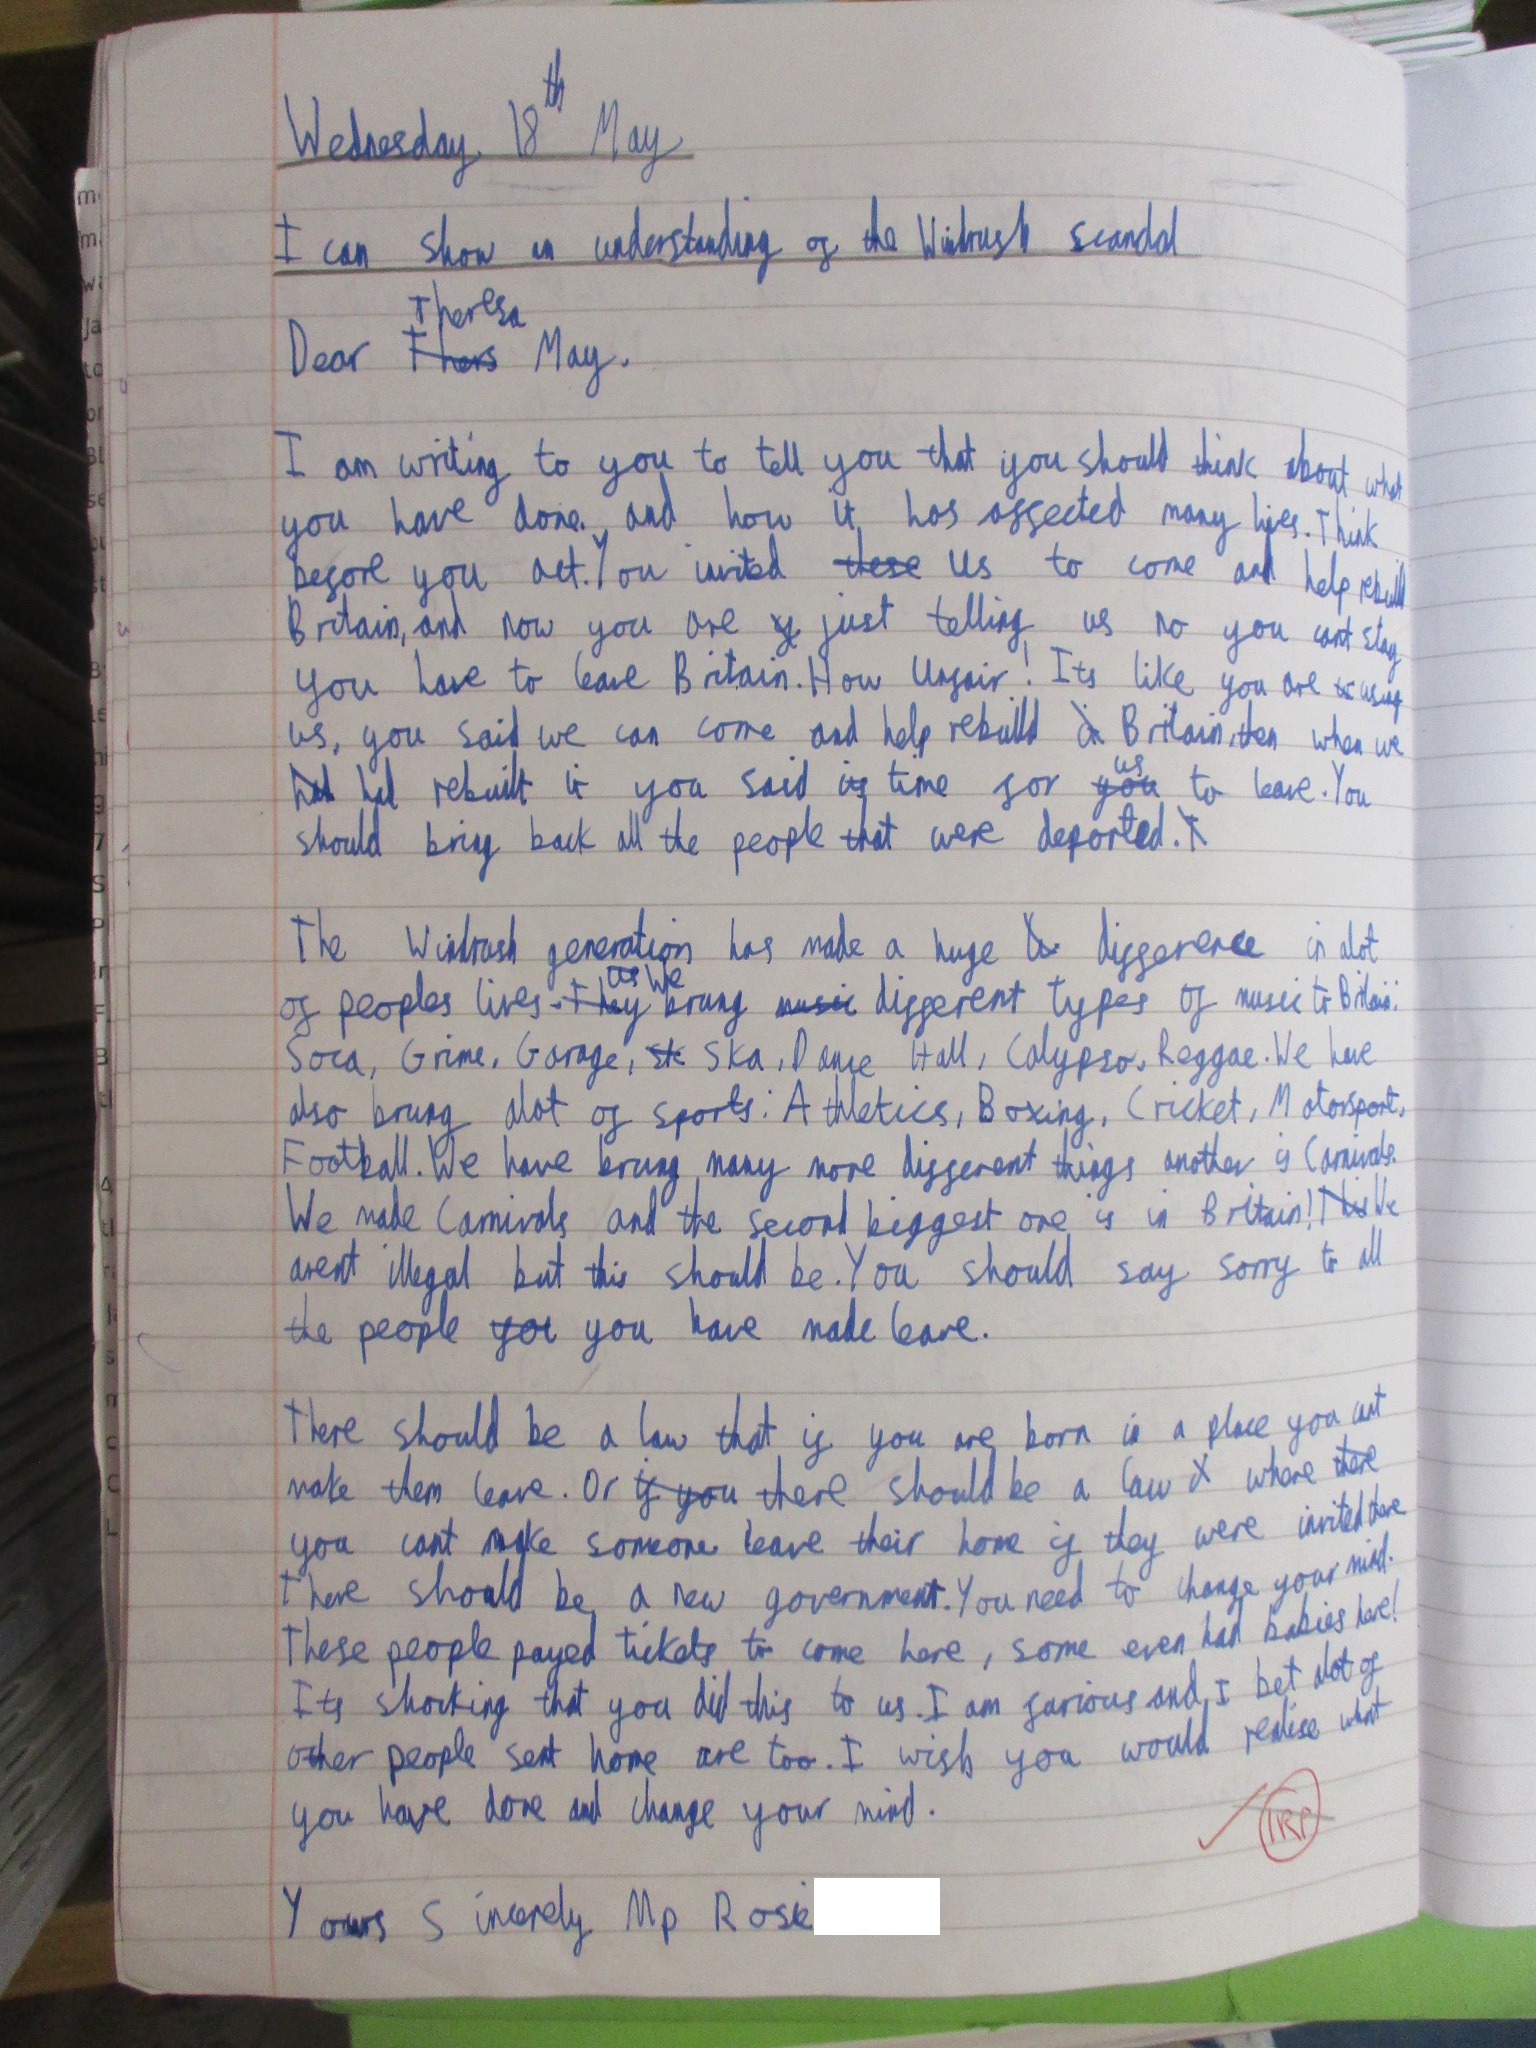 Wednesday 18th May
I can show an understanding of the Windrush scandal
Theresa
Dear Thers May.
I am writing to you to tell you that you should think about what
you have done. and how it has affected many lives. Think
before you act. You invited these us to come and help rebuild
Britain, and now you are just telling us no you cant stay
you have to leave Britain. How Unfair! Its like you are using
us, you said we can come and help rebuild Britain, then when we
had had rebuilt it you said its time for you us to leave. You
should bring back all the people that were deported.
The Windrush generation has made a huge difference in alot
of peoples lives. They as We brung music different types of music to Britain:
Soca, Grime, Garage, sk Ska, Dance Hall, Calypso, Reggae. We have
also brung alot of sports: Athletics, Boxing, Cricket, Motorsport,
Football. We have brung many more different things another is Carnivals.
We made Carnivals and the second biggest one is in Britain! This We
arent illegal but this should be. You should say sorry to all
the people you you have made leave.
There should be a law that if you are born in a place you cant
make them leave. Or if you there should be a law where there
you cant make someone leave their home if they were invited there
There should be a new government. You need to change your mind.
These people payed tickets to come here, some even had babies here!
Its shocking that you did this to us. I am farious and I bet alot of
other people sent home are too. I wish you would realise what
you have done and change your mind.
Yours Sincerely Mp Rosie